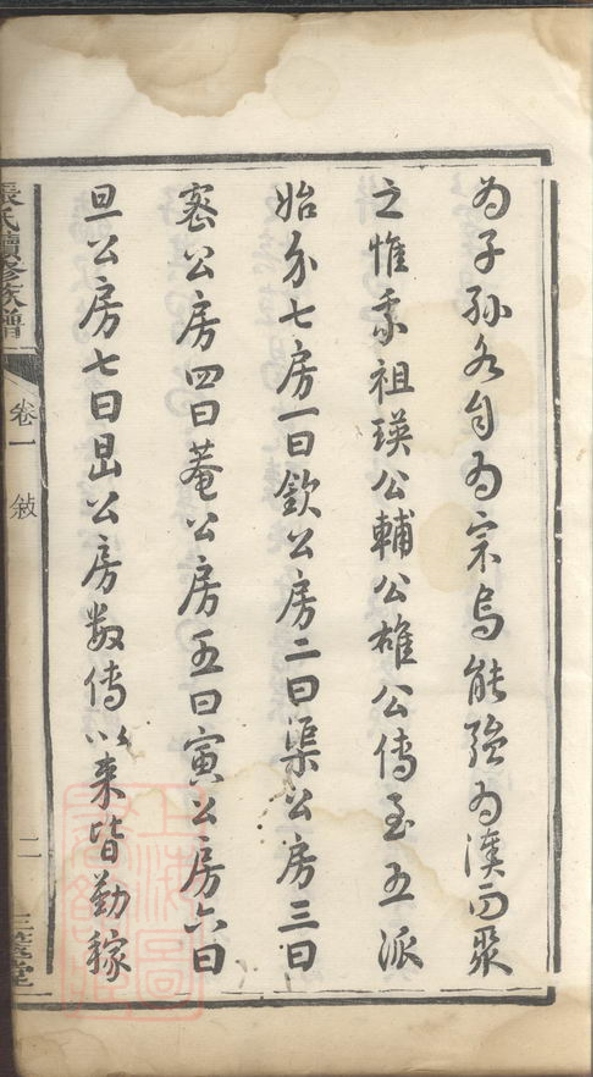 为子孫各自为宗烏能強为渙而聚
之惟我祖瑛公輔公雄公傳至五派
始分七房一曰欽公房二曰渠公房三曰
密公房四曰菴公房五曰寅公房六曰
旦公房七曰昆公房数傳以来皆勤稼
張氏續修族譜
卷一
敍
二
上海圖書館藏